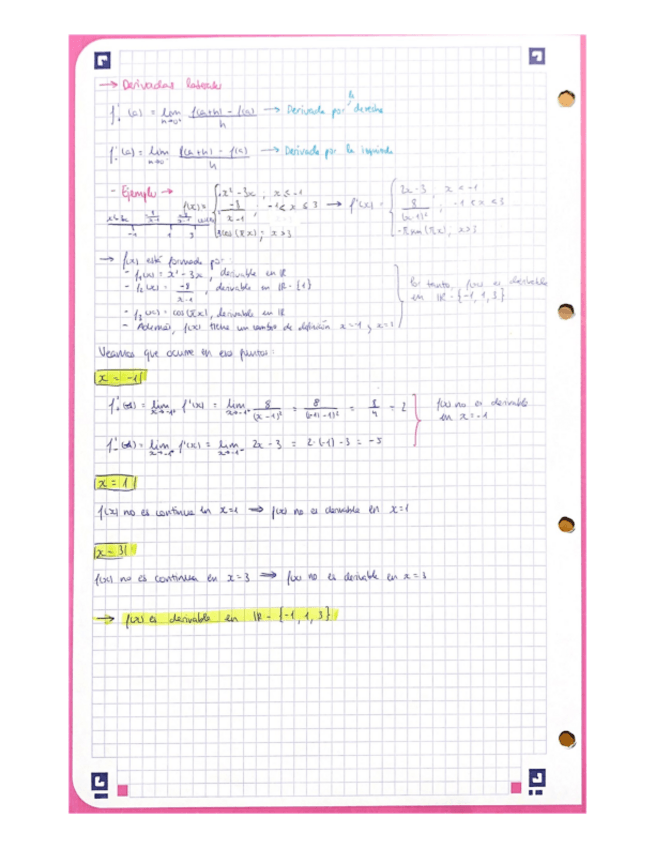 → Derivadas laterales
f'₊(a) = lim h→0⁺ f(a+h) - f(a) / h → Derivada por la derecha
f'₋(a) = lim h→0⁻ f(a+h) - f(a) / h → Derivada por la izquierda
- Ejemplo →
f(x) = { x² - 3x , x ≤ -1 ; -8/(x-1) , -1 < x ≤ 3 ; cos(πx) ; x > 3 → f'(x) = { 2x - 3 , x < -1 ; 8/(x-1)² ; -1 < x < 3 ; -π sen(πx), x > 3
-1 1 3
→ f(x) está formada por:
- f₁(x) = x² - 3x , derivable en ℝ
- f₂(x) = -8/(x-1) , derivable en ℝ - {1}
- f₃(x) = cos(πx), derivable en ℝ
- Además, f(x) tiene un cambio de definición x = -1 y x = 3
Por tanto, f(x) es derivable
en ℝ - {-1, 1, 3}
Veamos que ocurre en esos puntos:
x = -1
f'₊(-1) = lim x→-1⁺ f'(x) = lim x→-1⁺ 8/(x-1)² = 8/(-1-1)² = 8/4 = 2
f'₋(-1) = lim x→-1⁻ f'(x) = lim x→-1⁻ 2x - 3 = 2·(-1) - 3 = -5
f(x) no es derivable
en x = -1
x = 1
f(x) no es continua en x=1 ⟹ f(x) no es derivable en x=1
x = 3
f(x) no es continua en x=3 ⟹ f(x) no es derivable en x=3
→ f(x) es derivable en ℝ - {-1, 1, 3}